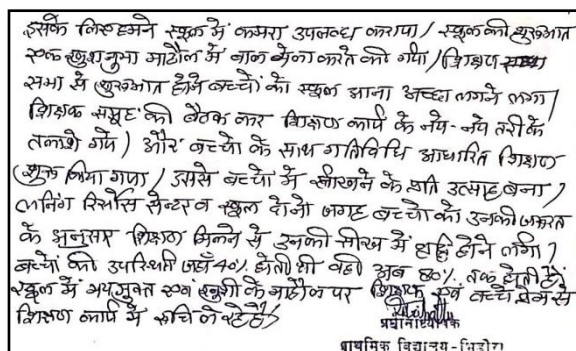 इसके लिए हमने स्कूल में कमरा उपलब्ध कराया। स्कूल की शुरुआत
एक खुशनुमा माहौल में बाल मेला करते की गयी। शिक्षण
सभा से शुरुआत होने बच्चों को स्कूल आना अच्छा लगने लगा।
शिक्षक समूह की बैठक कर शिक्षण कार्य के नये-नये तरीके
तलाशे गये। और बच्चों के साथ गतिविधि आधारित शिक्षण
शुरू किया गया। उससे बच्चों में सीखने के प्रति उत्साह बना।
लर्निंग रिसोर्स सेन्टर व स्कूल दोनो जगह बच्चों को उनकी जरूरत
के अनुसार शिक्षण मिलने से उनकी सीख में वृद्धि होने लगी।
बच्चों की उपस्थिती जहाँ 40% होती थी वही अब 80% तक होती है।
स्कूल में भयमुक्त एवं खुशी के माहौल पर शिक्षक एवं बच्चे प्रेम से
शिक्षण कार्य में रूचि ले रहे है।
प्रधानाध्यापक
प्राथमिक विद्यालय-